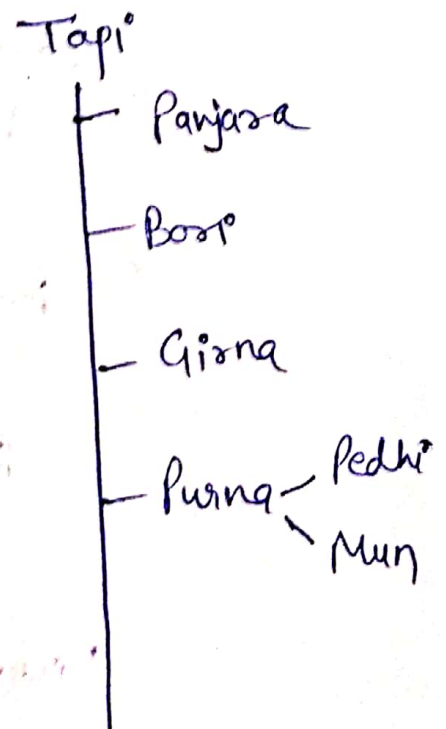 Tapi
Panjara
Bori
Girna
Purna
Pedhi
Mun